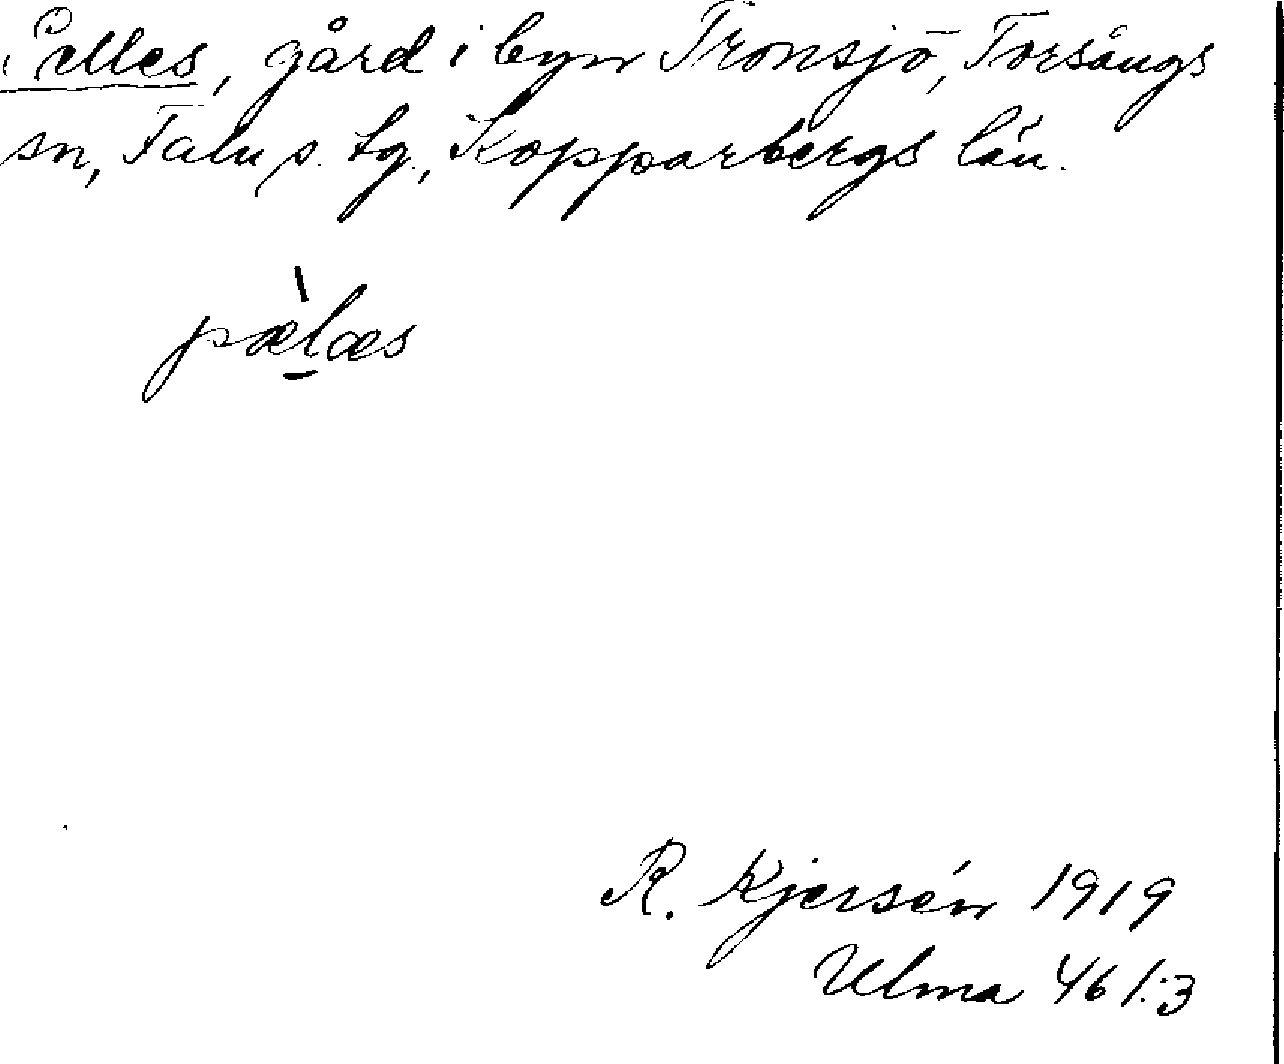 Pelles, gård i byn Tronsjö, Torsångs
sn, Falu s. tg., Kopparbergs län.
pæ̀l̠æs
R. Kjersén 1919
Ulma 461:3